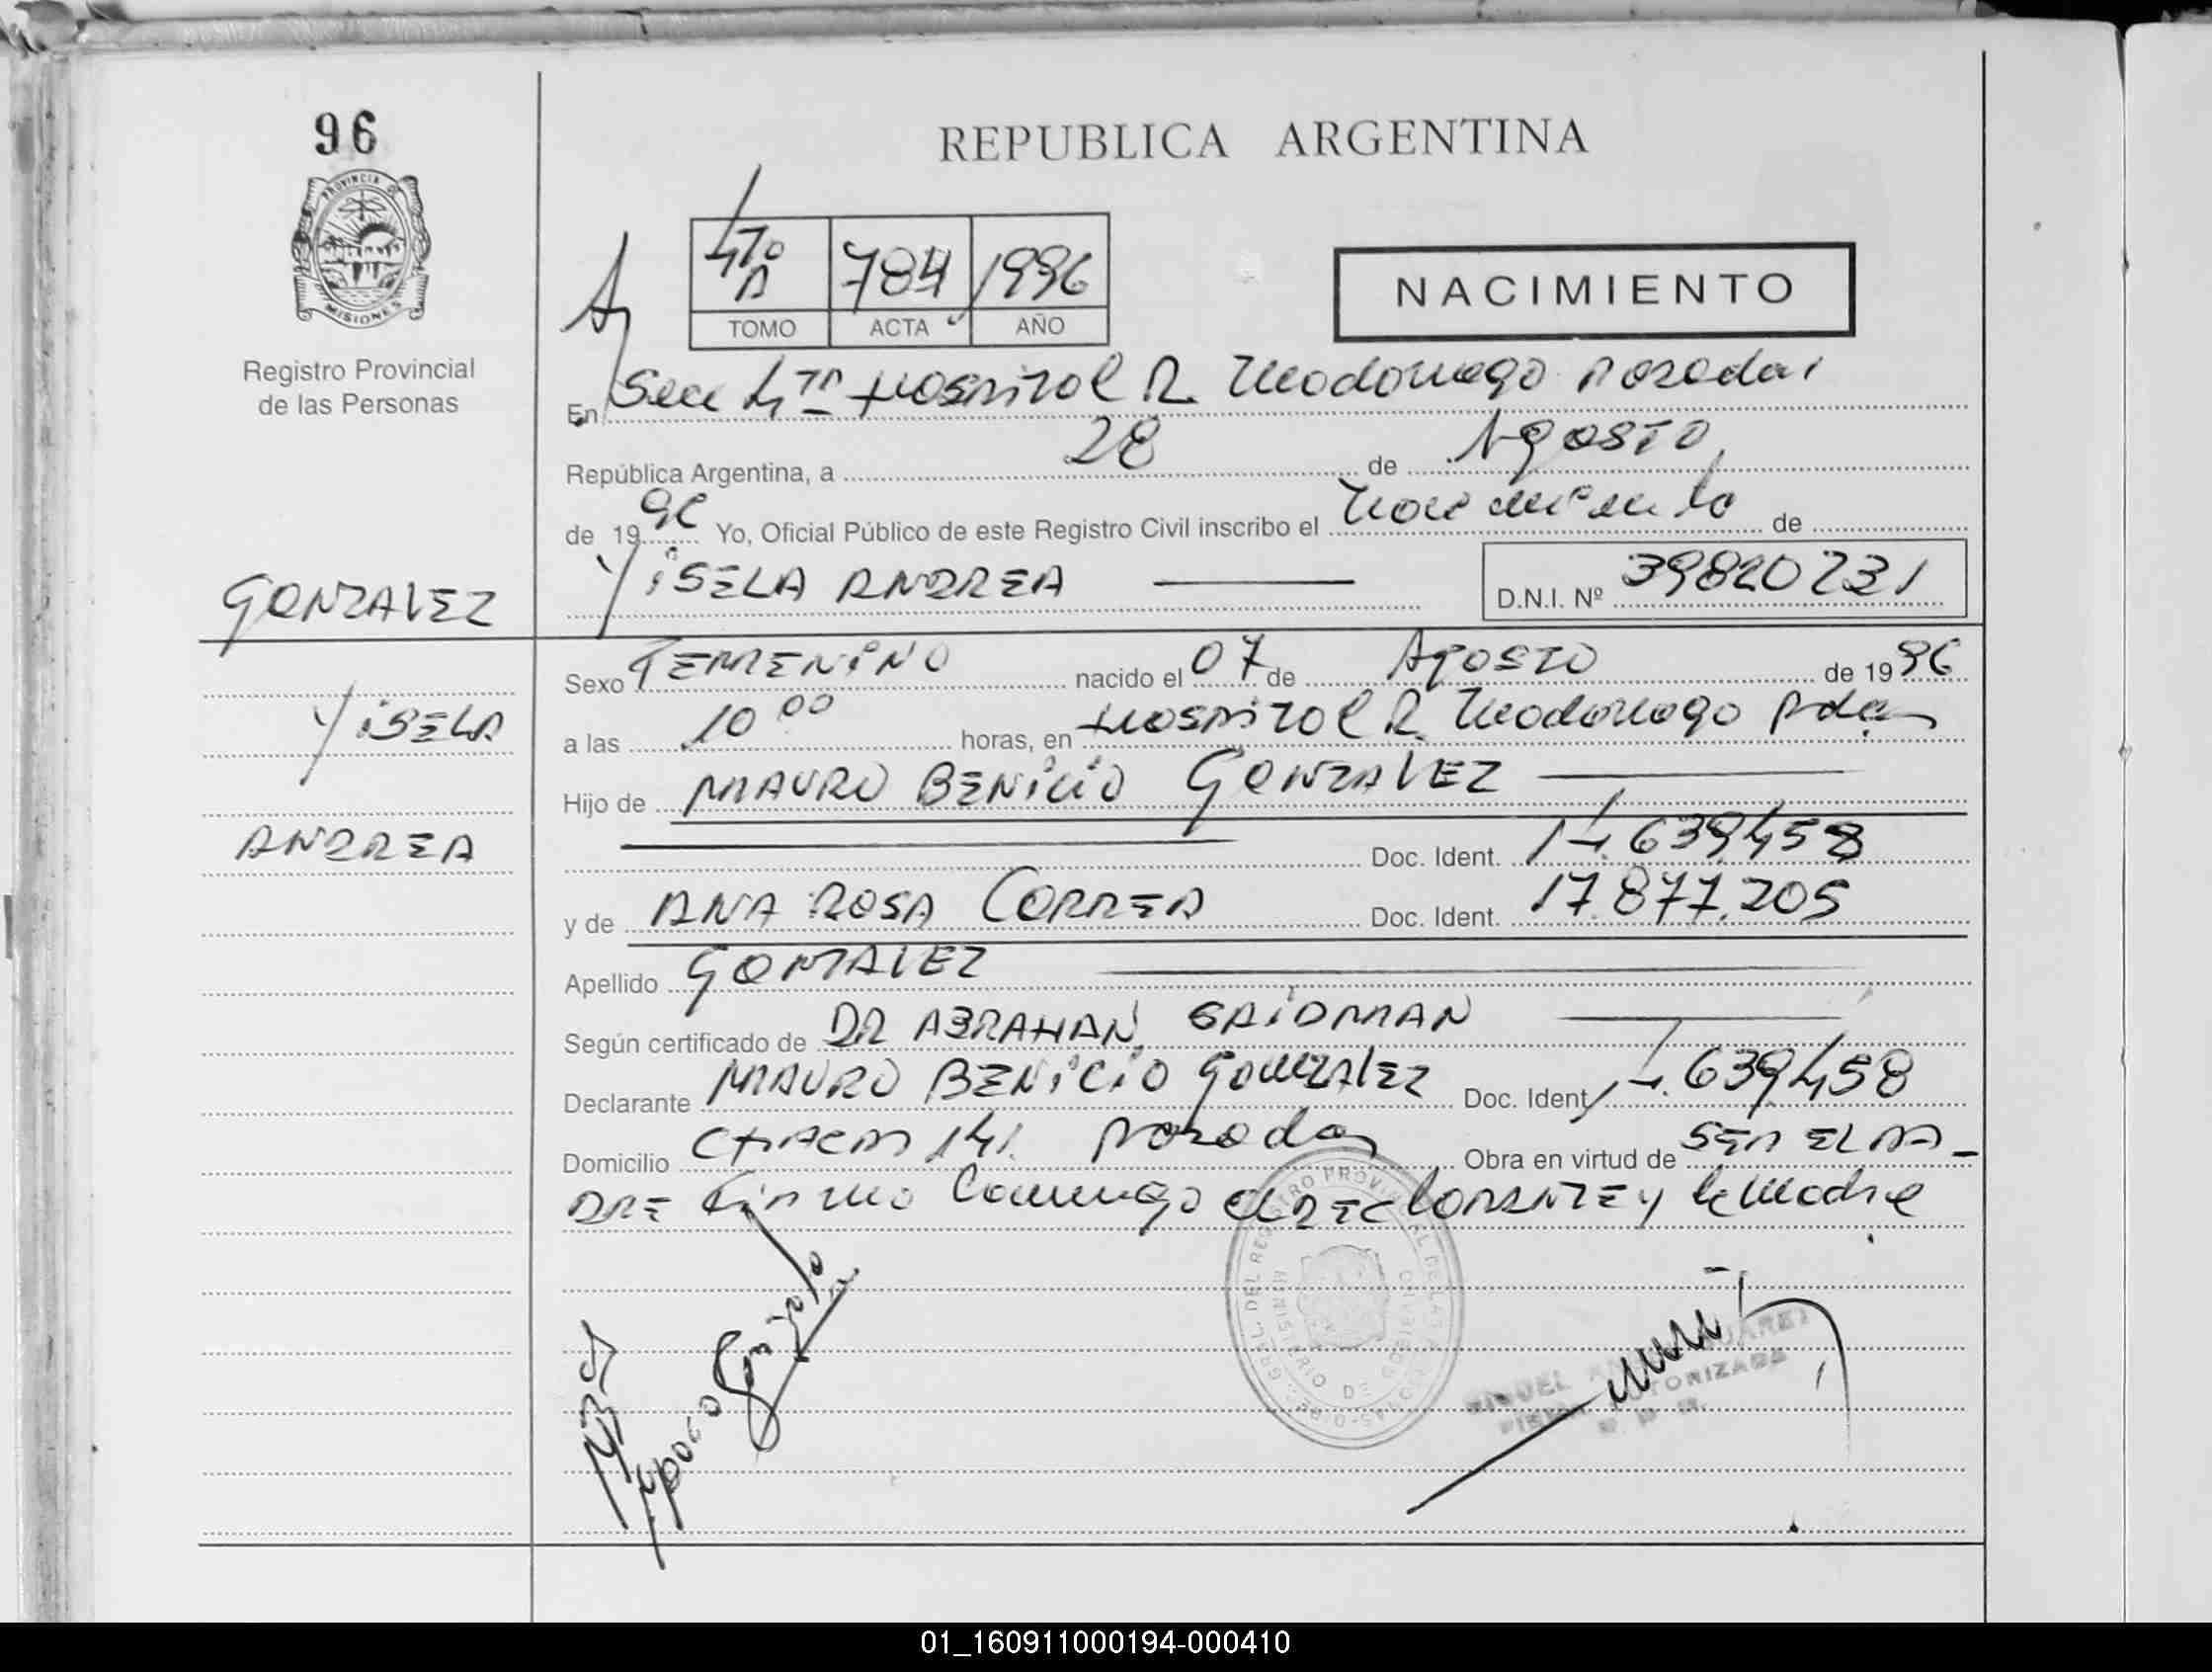 96
REPUBLICA ARGENTINA
PROVINCIA DE MISIONES
Registro Provincial
de las Personas
4to A 784 1996
TOMO ACTA AÑO
NACIMIENTO
En Secc 4ta Hospital R. Madariaga Posadas
República Argentina, a 28 de Agosto
de 1996 Yo, Oficial Público de este Registro Civil inscribo el nacimiento de
YISELA ANDREA
D.N.I. Nº 39820231
GONZALEZ
YISELA
ANDREA
Sexo FEMENINO nacido el 07 de Agosto de 1996
a las 10 00 horas, en Hospital R. Madariaga Pdas
Hijo de MAURO BENICIO GONZALEZ
Doc. Ident. 14.639458
y de ANA ROSA CORREA Doc. Ident. 17.877.205
Apellido GONZALEZ
Según certificado de DR ABRAHAN SAIDMAN
Declarante MAURO BENICIO GONZALEZ Doc. Ident 14.639458
Domicilio CHACRA 141. Posadas Obra en virtud de SER EL PA-
DRE Firma Conmigo el DECLARANTE y la Madre
MINISTERIO DE GOBIERNO
MIGUEL SUAREZ
FIRMA AUTORIZADA
01_160911000194-000410